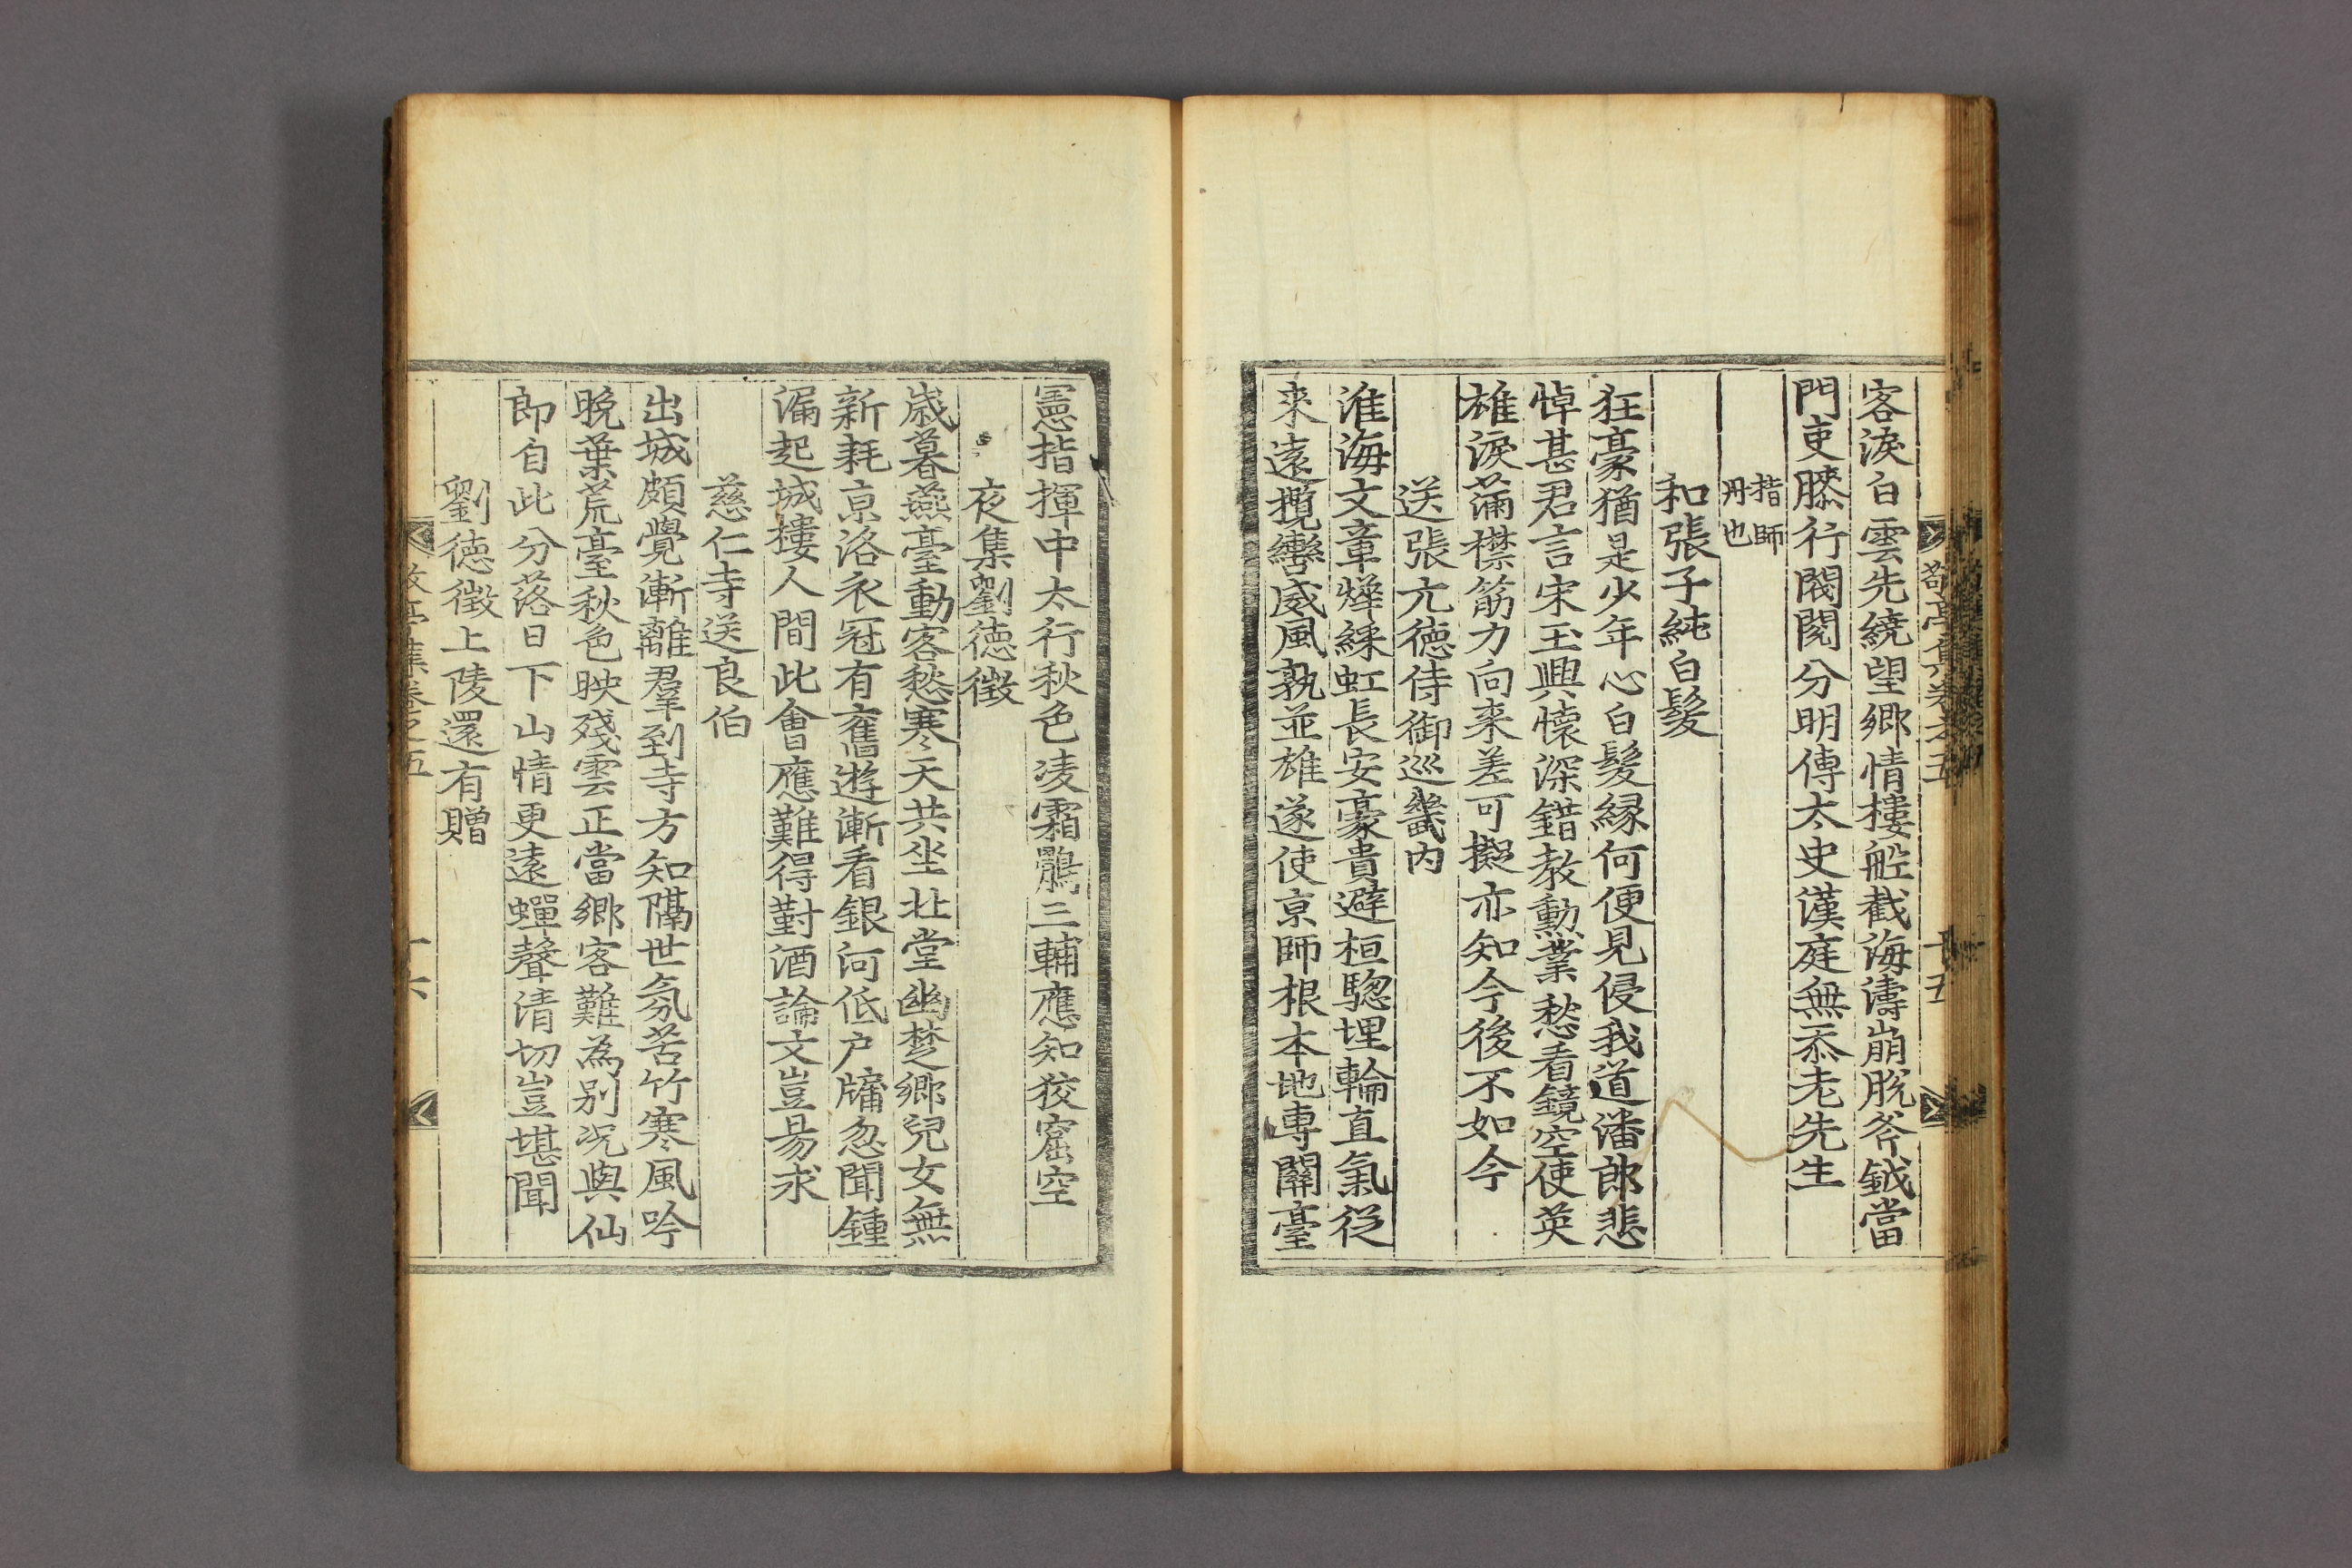 客淚白雲先繞望鄉情樓舩截海濤崩脫斧鉞當
門吏膝行閥閱分明傳太史漢庭無忝老先生
指師
丹也
和張子純白髮
狂豪猶是少年心白髮緣何便見侵我道潘郎悲
悼甚君言宋玉興懷深錯教勳業愁看鏡空使英
雄淚滿襟筋力向来差可擬亦知今後不如今
送張亢德侍御巡畿内
淮海文章燁綵虹長安豪貴避桓驄埋輪直氣從
来遠攬轡威風孰並雄遂使京師根本地專關臺
憲指揮中太行秋色凌霜鶚三輔應知狡窟空
夜集劉德徵
歳暮燕臺動客愁寒天共坐北堂幽楚鄉兒女無
新耗京洛衣冠有舊遊漸看銀河低户牖忽聞鍾
漏起城樓人間此會應難得對酒論文豈易求
慈仁寺送良伯
出城頗覺漸離羣到寺方知隔世氛苦竹寒風吟
晚葉荒臺秋色映殘雲正當鄉客難為别况與仙
郎自此分落日下山情更遠蟬聲清切豈堪聞
劉德徵上陵還有贈
亭集卷之五
十六